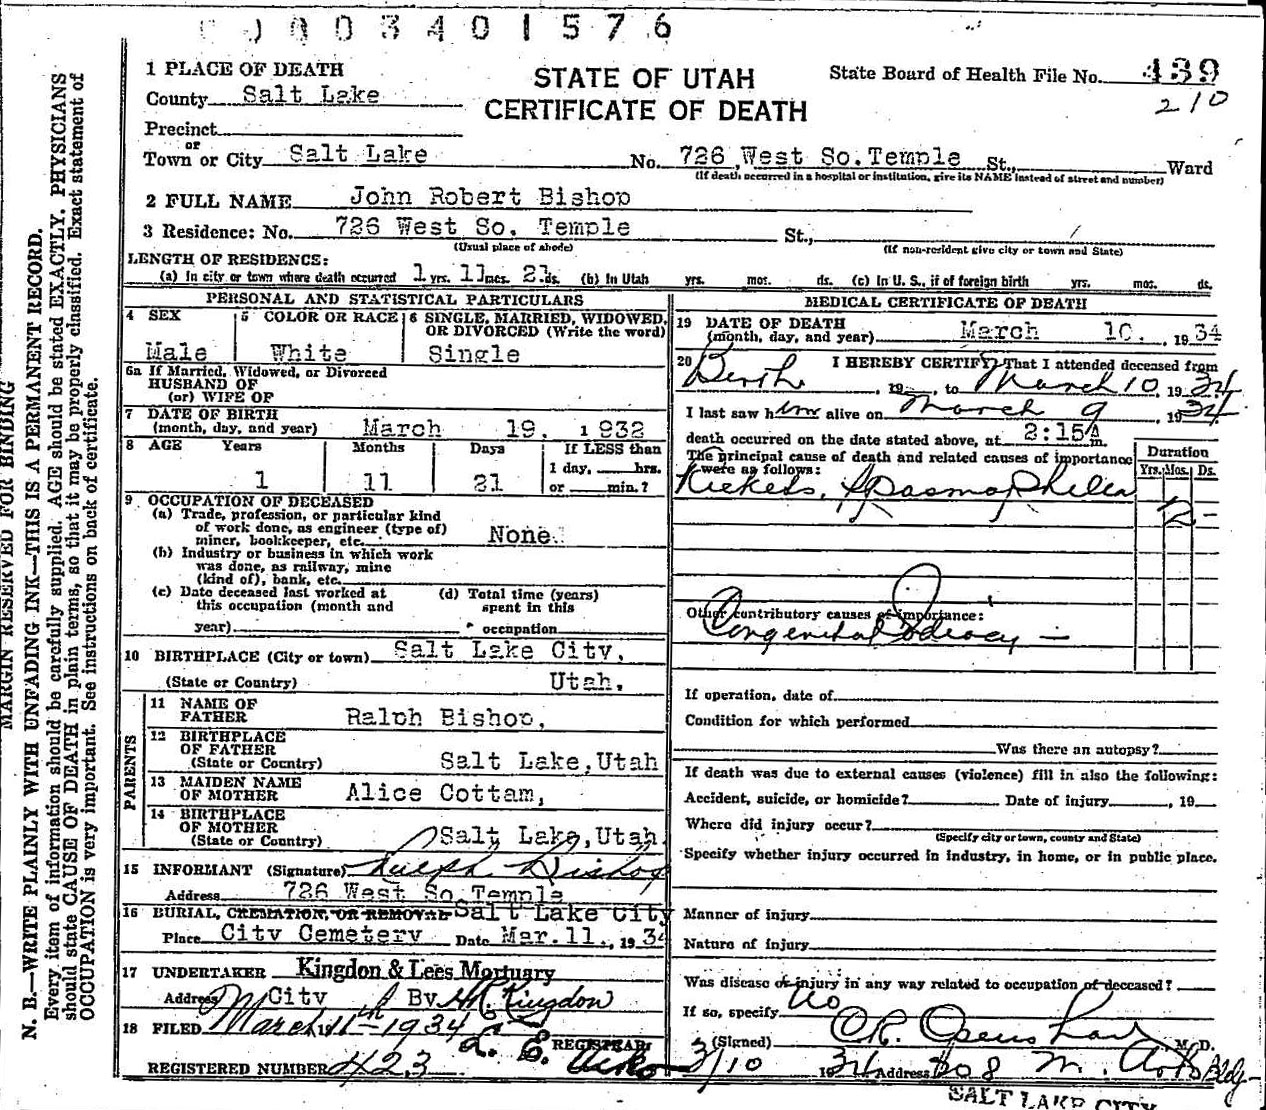 0003401576
1 PLACE OF DEATH
STATE OF UTAH
CERTIFICATE OF DEATH
State Board of Health File No. 439
210
County Salt Lake
Precinct
or
Town or City Salt Lake No. 726 West So. Temple St., Ward
(If death occurred in a hospital or institution, give its NAME instead of street and number)
2 FULL NAME John Robert Bishop
3 Residence: No. 726 West So. Temple St.,
(Usual place of abode) (If non-resident give city or town and State)
LENGTH OF RESIDENCE:
(a) In city or town where death occurred 1 yrs. 11 mos. 21 ds. (b) In Utah yrs. mos. ds. (c) In U. S., if of foreign birth yrs. mos. ds.
PERSONAL AND STATISTICAL PARTICULARS
4 SEX 5 COLOR OR RACE 6 SINGLE, MARRIED, WIDOWED, OR DIVORCED (Write the word)
Male White Single
6a If Married, Widowed, or Divorced
HUSBAND OF
(or) WIFE OF
7 DATE OF BIRTH
(month, day, and year) March 19, 1932
8 AGE Years Months Days If LESS than
1 11 21 1 day, hrs.
or min.?
9 OCCUPATION OF DECEASED
(a) Trade, profession, or particular kind
of work done, as engineer (type of)
miner, bookkeeper, etc. None.
(b) Industry or business in which work
was done, as railway, mine
(kind of), bank, etc.
(c) Date deceased last worked at (d) Total time (years)
this occupation (month and spent in this
year) occupation
10 BIRTHPLACE (City or town) Salt Lake City,
(State or Country) Utah,
PARENTS
11 NAME OF
FATHER Ralph Bishop,
12 BIRTHPLACE
OF FATHER
(State or Country) Salt Lake, Utah
13 MAIDEN NAME
OF MOTHER Alice Cottam,
14 BIRTHPLACE
OF MOTHER
(State or Country) Salt Lake, Utah.
15 INFORMANT (Signature) Ralph Bishop
Address 726 West So. Temple
16 BURIAL, CREMATION, OR REMOVAL Salt Lake City
Place City Cemetery Date Mar. 11., 1934
17 UNDERTAKER Kingdon & Lees Mortuary
Address City By Kingdon
18 FILED March 11- 1934
REGISTRAR
REGISTERED NUMBER 423
MEDICAL CERTIFICATE OF DEATH
19 DATE OF DEATH
(month, day, and year) March 10. , 1934
20 I HEREBY CERTIFY, That I attended deceased from
Birth , 19 , to March 10, 1934
I last saw him alive on March 9 , 1934
death occurred on the date stated above, at 2:15A m.
The principal cause of death and related causes of importance
were as follows:
Duration
Yrs. Mos. Ds.
Rickets, Spasmophilia 12 -
Other contributory causes of importance:
Congenital Idiocy -
If operation, date of
Condition for which performed
Was there an autopsy?
If death was due to external causes (violence) fill in also the following:
Accident, suicide, or homicide? Date of injury , 19
Where did injury occur?
(Specify city or town, county and State)
Specify whether injury occurred in industry, in home, or in public place.
Manner of injury
Nature of injury
Was disease or injury in any way related to occupation of deceased?
No
If so, specify
(Signed) M. D.
3/10 1934 Address Bldg-
SALT LAKE CITY
MARGIN RESERVED FOR BINDING
N. B.—WRITE PLAINLY WITH UNFADING INK—THIS IS A PERMANENT RECORD.
Every item of information should be carefully supplied. AGE should be stated EXACTLY. PHYSICIANS
should state CAUSE OF DEATH in plain terms, so that it may be properly classified. Exact statement of
OCCUPATION is very important. See instructions on back of certificate.